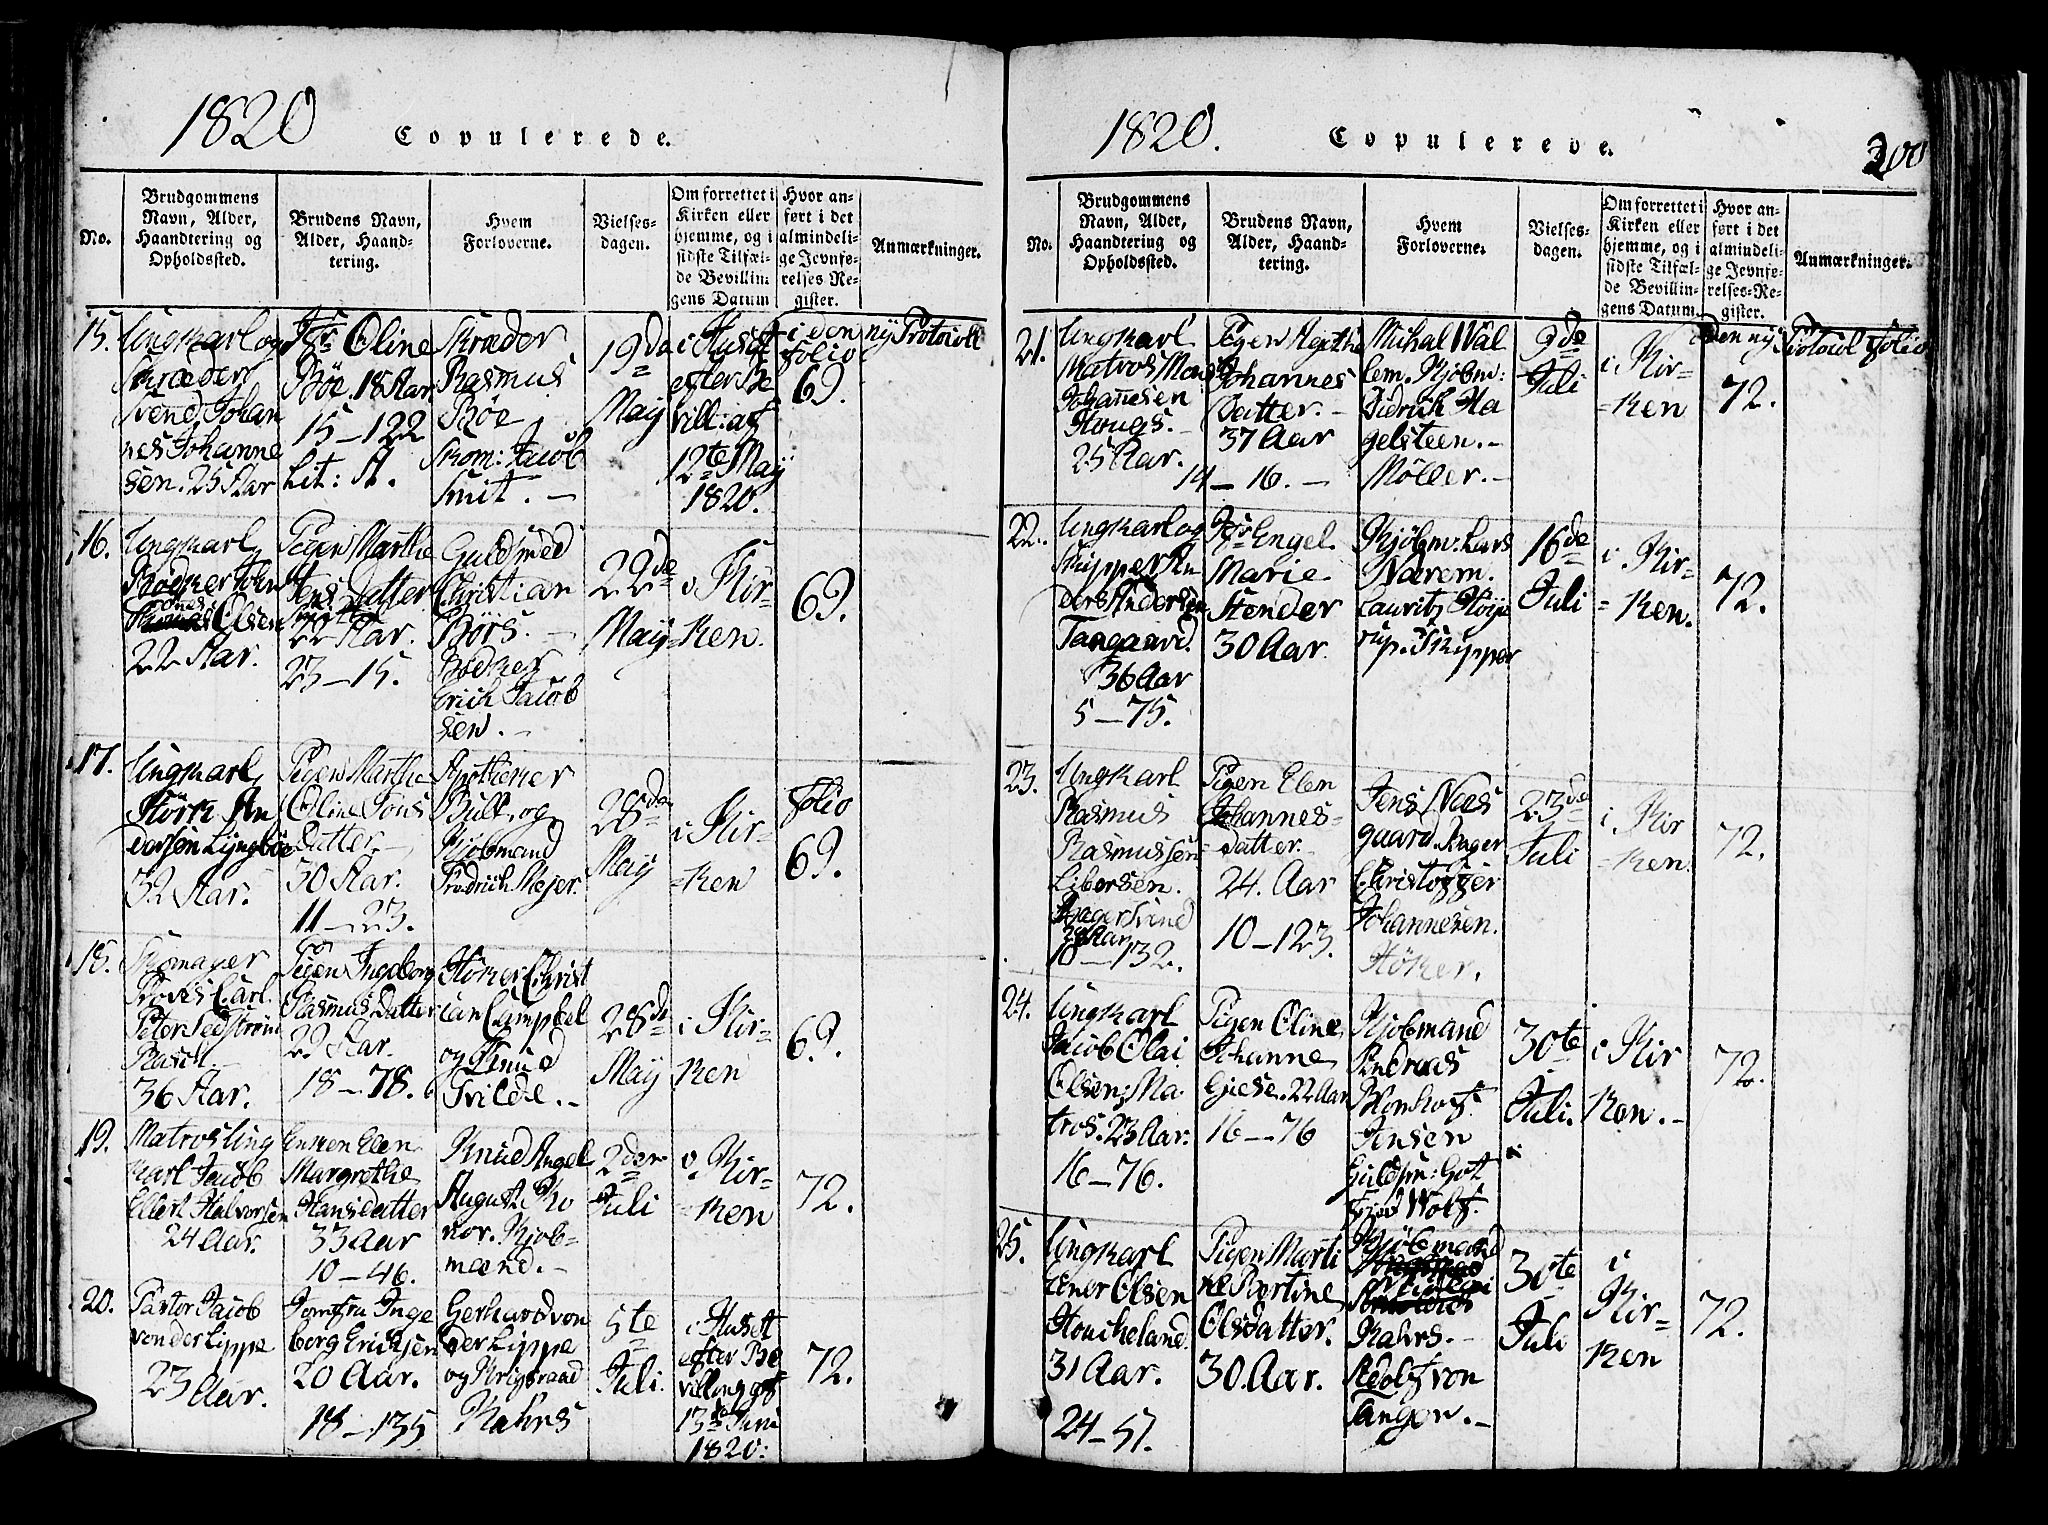 1820
Copulerede.
No.
Brudgommens
Navn, Alder,
Haandtering og
Opholdssted.
Brudens Navn,
Alder, Haand-
tering.
Hvem
Forloverne.
Vielses-
dagen.
Om forrettet i
Kirken eller
hjemme, og i
sidste Tilfæl-
de Bevillin-
gens Datum
Hvor an-
ført i det
almindeli-
ge Jevnfø-
relses Re-
gister.
Anmærkninger.
15.
Ungkarl og
Skræder
Svend Johan
nes Johanne
sen. 25 Aar
Jfr Oline
Bøe. 18 Aar
15-122
Lit: A.
Skræder
Rasmus
Bøe
Skom: Jacob
Smit. -
19de
May
i Huset
efter Be
vill: af
12te May
1820.
i den ny Protocoll
folio
69.
16.
Ungkarl
Bødker John
Olsen
22 Aar.
Pigen Marthe
Jens Datter
22 Aar.
23-15.
Guldsmed
Christian
Børs. -
Bødker
Erich Jacob
sen. -
22de
May
i Kir-
ken.
69.
17.
Ungkarl
Størk An
dersen Lyngböe
32 Aar.
Pigen Marthe
Oline Tøns
datter. -
30 Aar.
11-23.
Apotheker
Bull. og
Kjøbmand
Fredrich Mejer.
28de
May
i Kir-
ken
folio
69.
18.
Peter Sedstrøm
Rasch
36 Aar.
Pigen Ingeborg
Rasmus Datter
29 Aar.
18-78.
Høker Christ
ian Campbel
og Knud
Tvilde. -
28de
May
i Kir-
ken
69.
19.
Matros Ung
karl Jacob
Ellert Halvorsen
24 Aar.
Enken Elen
Margrethe
Hansdatter
33 Aar
10-46.
Knud Angel
August. Ko
nor. Kjøb-
mænd. -
2den
Juli
i Kir-
ken
72.
20.
Pastor Jacob
von der Lippe
23 Aar.
Jomfru Inge
borg Erichsen
20 Aar.
18-135
Gerhard von
der Lippe
og Krigsraad
Kahrs
5te
Juli.
i Husett
efter Be
villing af
13de Juni
1820.
72.
1820.
Copulerede.
200
No.
Brudgommens
Navn, Alder,
Haandtering og
Opholdssted.
Brudens Navn,
Alder, Haand-
tering.
Hvem
Forloverne.
Vielses-
dagen.
Om forrettet i
Kirken eller
hjemme, og i
sidste Tilfæl-
de Bevillin-
gens Datum.
Hvor an-
ført i det
almindeli-
ge Jevnfø-
relses-Re-
gister.
Anmærkninger.
21.
Ungkarl
Matros Mons
Johannesen
Hougs. -
25 Aar.
Pigen Agethe
Johannes
Datter. -
37 Aar
14-16. -
Michal Wal
lem. Kjøbm:
Didrich Ha
gelsteen. -
Møller. -
9de
Juli
i Kir-
ken
Den ny Protocol folio
72.
22.
Ungkarl og
Skipper An
ders Andersen
Tangaard.
36 Aar
5-75.
Jfr Engel
Marie
Stender
30 Aar.
Kjøbm: Lars
Nærem.
Lauritz Høye
rup. Skipper
16de
Juli
i Kir-
ken.
72.
23.
Ungkarl
Rasmus
Rasmussen
Libersen.
Ager Svend
28 Aar
10-132.
Pigen Elen
Johannes-
datter. -
24. Aar
10-123.
Jens Næs
guard. Ager
Christoffer
Johannesen.
Høker.
23de
Juli
i Kir
ken.
72.
24.
Ungkarl
Jacob Olai
Olsen; Ma
tros. 23 Aar.
16-76.
Pigen Oline
Johanne
Gjese. 22 Aar
16-76
Kjøbmand
Andreas
Klonhoff.
Jensen
Guldsm: Got
fried Wolf.
30te
Juli.
i Kir
ken. -
72.
25.
Ungkarl
Ener Olsen
Houcheland.
31 Aar.
24-51.
Pigen Marti
ne Bertine
Olsdatter.
30. Aar.
Kjøbmænd
Kahrs. -
Adolf von
Tangen. -
30te
Juli
i
Kir-
ken
72.